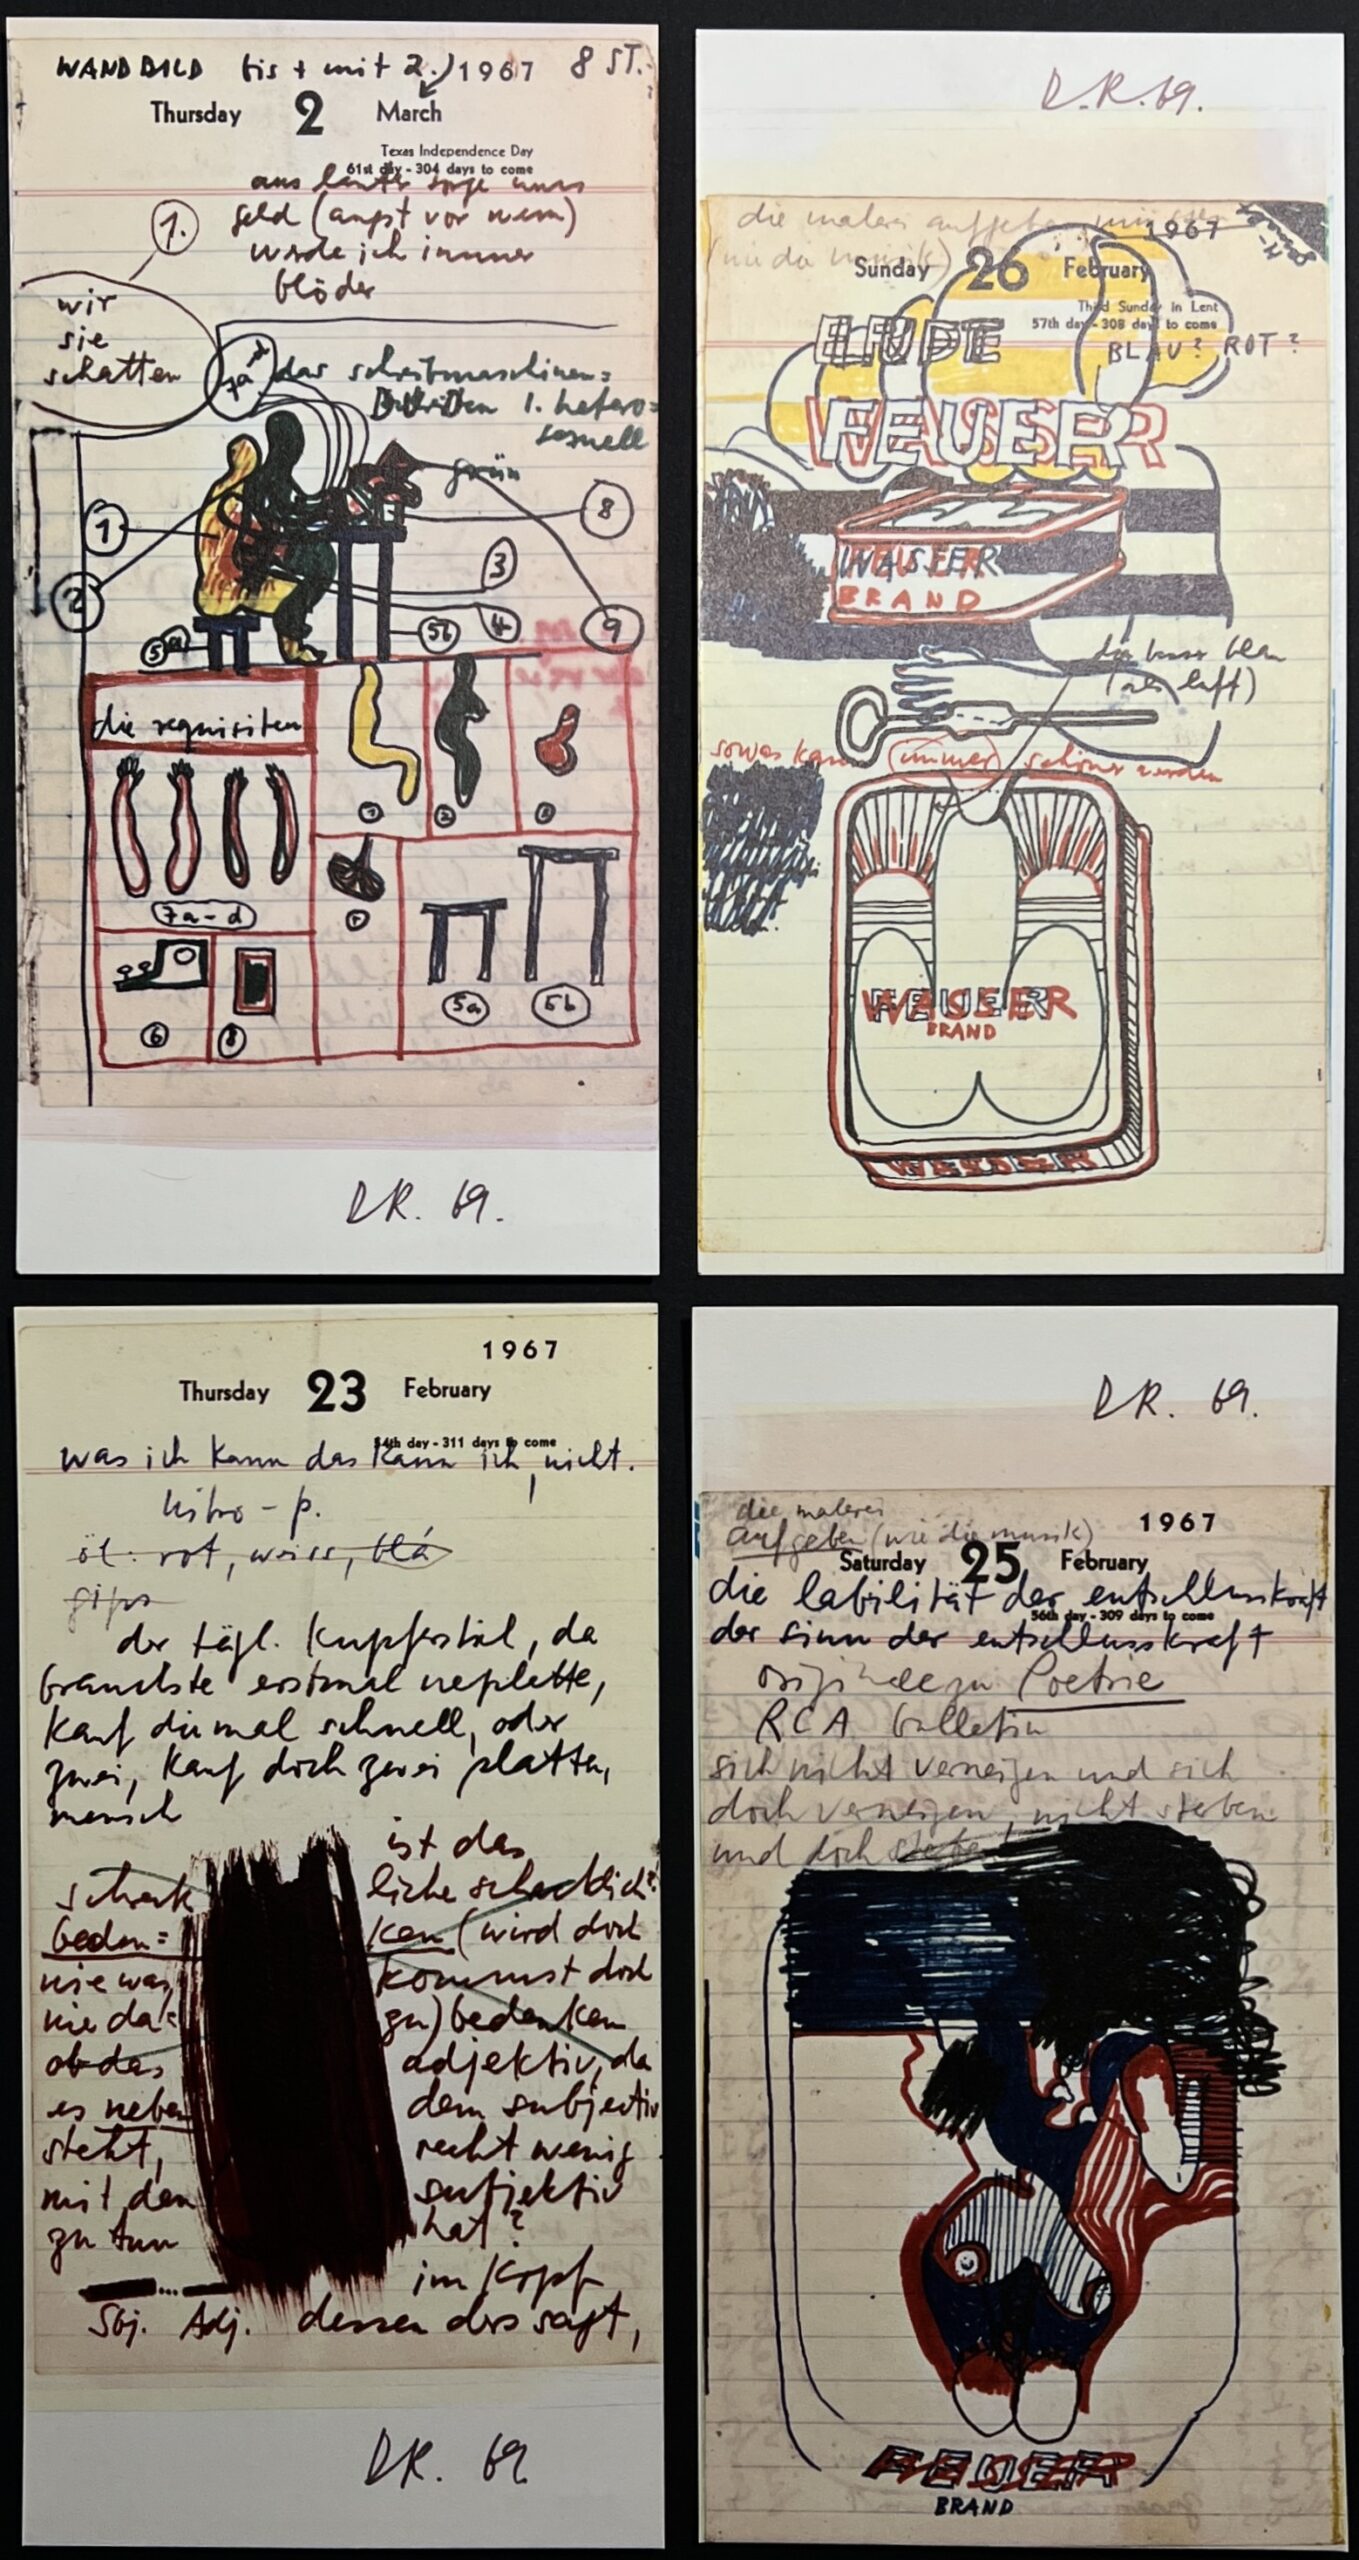 WANDBILD bis + mit 2.) 1967 8 ST.
Thursday 2 March
Texas Independence Day
61st day - 304 days to come
aus lauter sorge ums
geld (angst vor wem)
werde ich immer
blöder
1.
wir
sie
schatten
das schreibmaschinen=
1. hetero=
sexuell
grün
1
8
2
3
5a
5b
4
9
die requisiten
1
2
3
7a-d
5a
5b
6
8
D.R. 69.
D.R. 69.
die malerei aufgeben müssen
1967
(wie die musik)
Sunday 26 February
Third Sunday in Lent
57th day - 308 days to come
BLAU? ROT?
FEUER
WASSER
BRAND
(als luft)
sowas kann (immer) schöner werden
FEUER
WASSER
BRAND
WASSER
1967
Thursday 23 February
54th day - 311 days to come
was ich kann das kann ich nicht.
nitro - p.
öl: rot, weiss, bla
gips
der tägl. kupferstich, da
brauchste erstmal neplatte,
kauf die mal schnell, oder
zwei, kauf doch zwei platten,
mensch
ist das
schreck liche schrecklich?
beden= ken (wird doch
nie was, kommst doch
nie da= zu) bedenken
ob das adjektiv, da
es neben dem subjectiv
steht, recht wenig
mit dem subjektiv
zu tun hat?
im kopf
Sbj. ... Adj. dessen ders sagt,
D.R. 69
D.R. 69.
die malerei
aufgeben (wie die musik) 1967
Saturday 25 February
die labilität der entschlusskraft
56th day - 309 days to come
der sinn der entschlusskraft
originale zu Poetrie
RCA bulletin
sich nicht verneigen und sich
doch verneigen, nicht sterben
und doch sterben
FEUER
BRAND